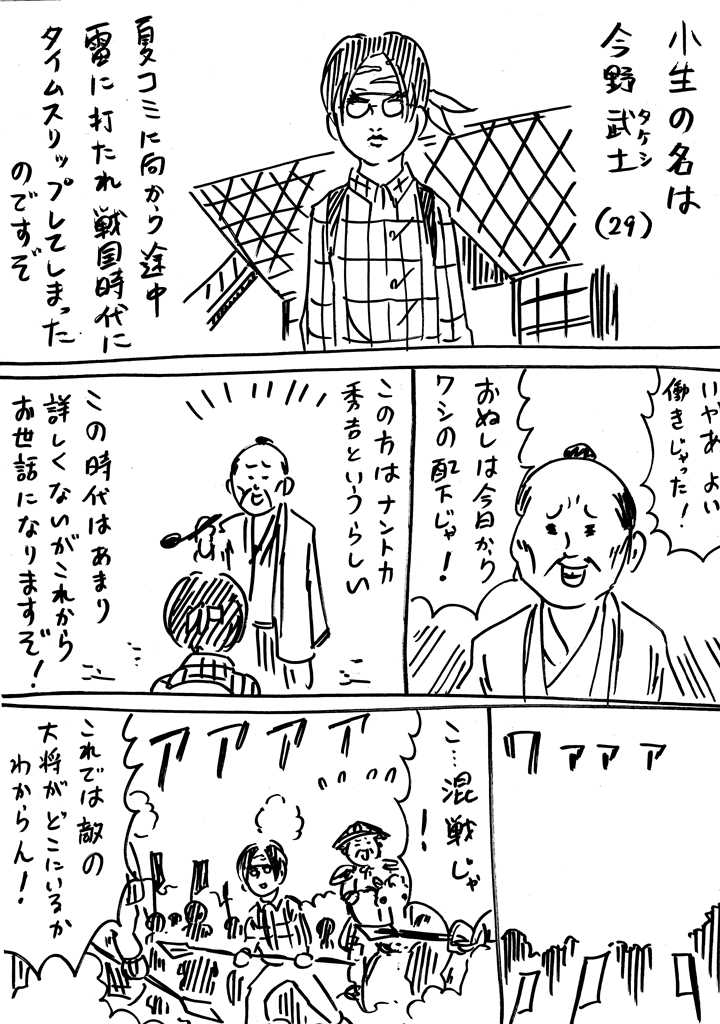 小生の名は
今野武士
タケシ
(29)
夏コミに向かう途中
雷に打たれ戦国時代に
タイムスリップしてしまった
のですぞ
いやあよい
働きじゃった!
おぬしは今日から
ワシの配下じゃ!
この方はナントカ
秀吉というらしい
この時代はあまり
詳しくないがこれから
お世話になりますぞ!
ワァァァ
アアアア
こ…混戦じゃ
!
これでは敵の
大将がどこにいるか
わからん!